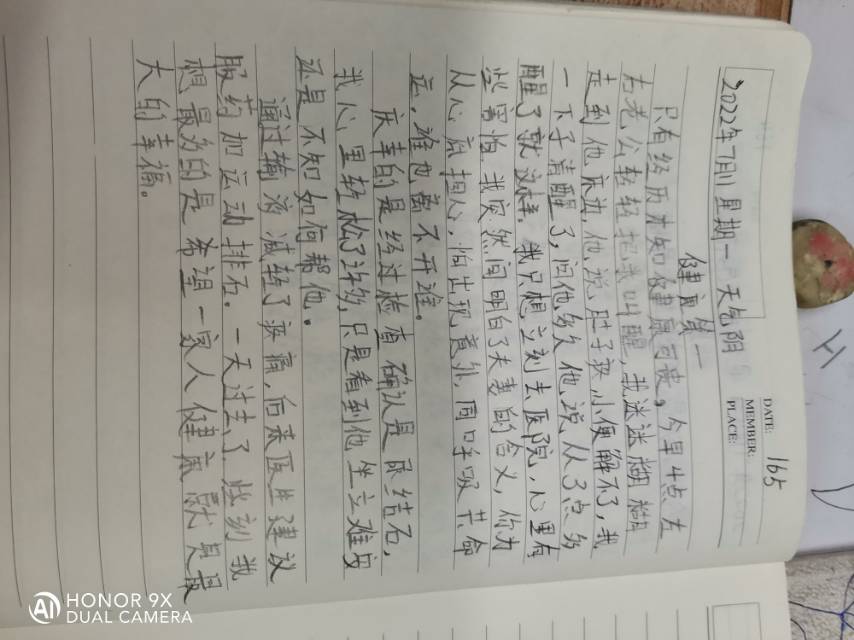 DATE: 165
MEMBER:
PLACE:
2022年7月11星期一 天气阴
健康第一
只有经历才知健康可贵,今早4点左
右老公轻轻把我叫醒,我迷迷糊糊
走到他床边,他说肚子疼小便解不了,我
一下子清醒了,问他多久他说从3点多
醒了就这样。我只想立刻去医院,心里有
些害怕 我突然间明白了夫妻的含义,你为
从心底担心,怕出现意外,同呼吸共命
运,谁也离不开谁。
庆幸的是经过检查确认是尿结石,
我心里轻松了许多,只是看到他坐立难安
还是不知如何帮他。
通过输液减轻了疼痛,后来医生建议
服药加运动排石。一天过去了 此刻我
想最多的是希望一家人健康就是最
大的幸福。
H
AI HONOR 9X
DUAL CAMERA